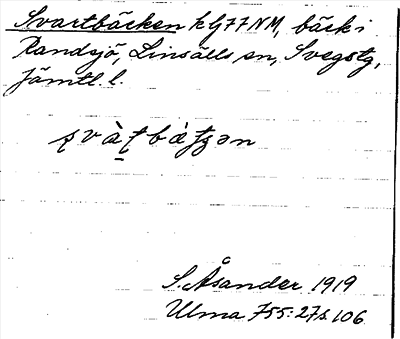 Svartbäcken k Lj77NM, bäck i
Randsjö, Linsälls sn, Svegs tg,
Jämtl. l.
S. Åsander 1919
Ulma 755:27 s. 106